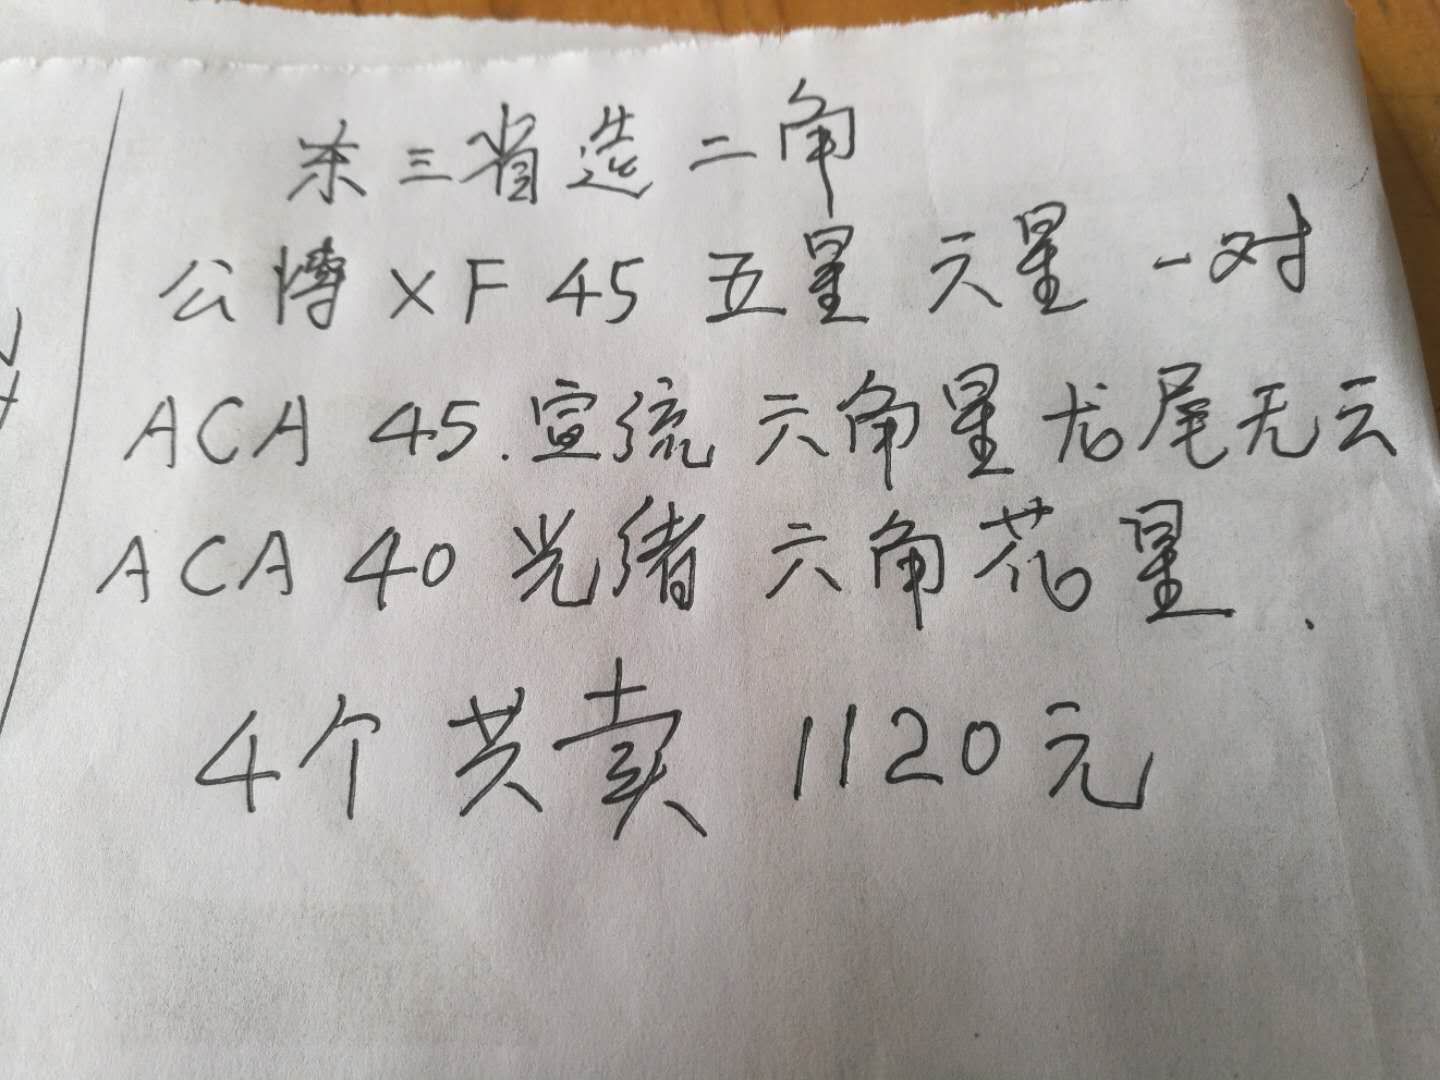 东三省造二角
公博XF45五星六星一对
ACA 45.宣流六角星龙尾无云
ACA 40光绪六角花星.
4个共卖1120元